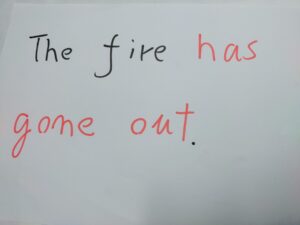 The fire has
gone out.